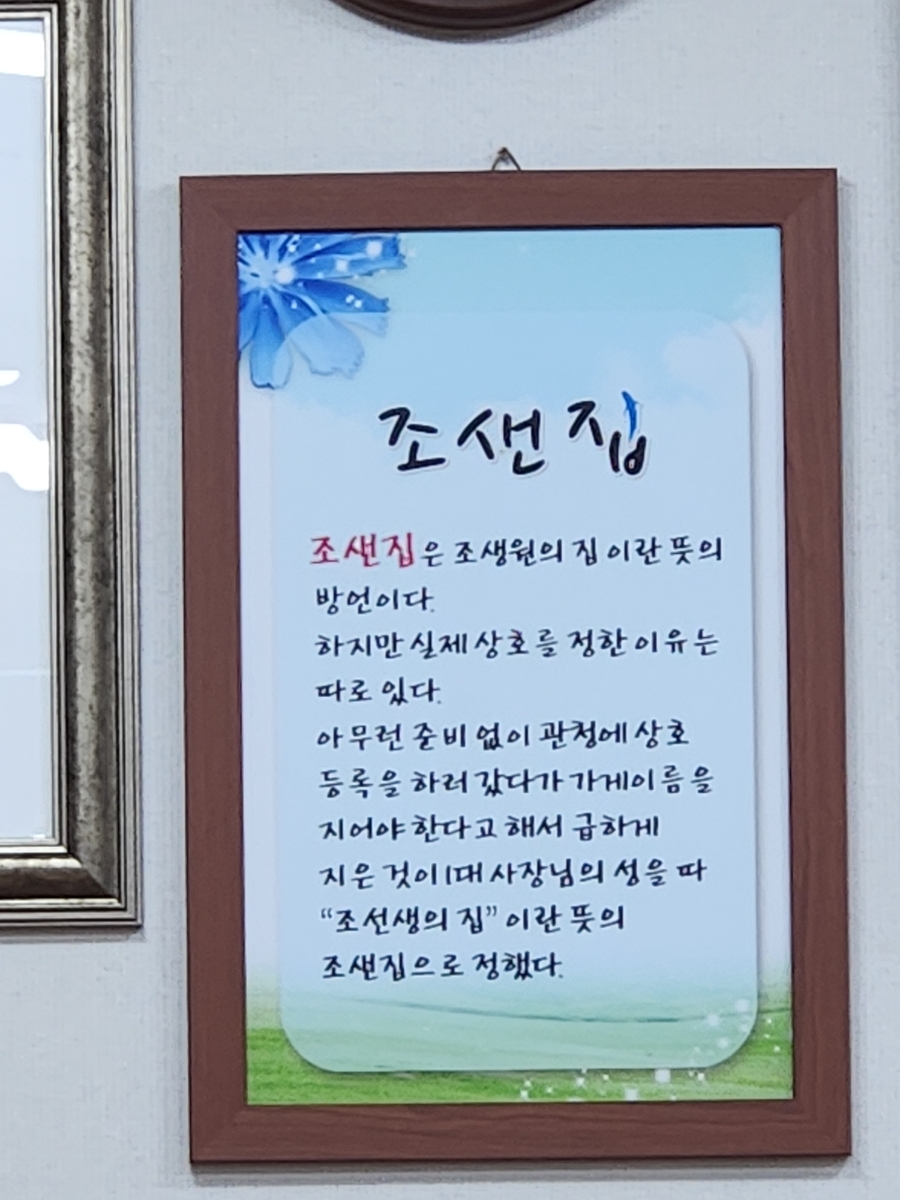 조샌집
조샌집은 조생원의 집이란 뜻의
방언이다.
하지만 실제 상호를 정한 이유는
따로 있다.
아무런 준비 없이 관청에 상호
등록을 하러 갔다가 가게이름을
지어야 한다고 해서 급하게
지은 것이 1대 사장님의 성을 따
“조선생의 집” 이란 뜻의
조샌집으로 정했다.